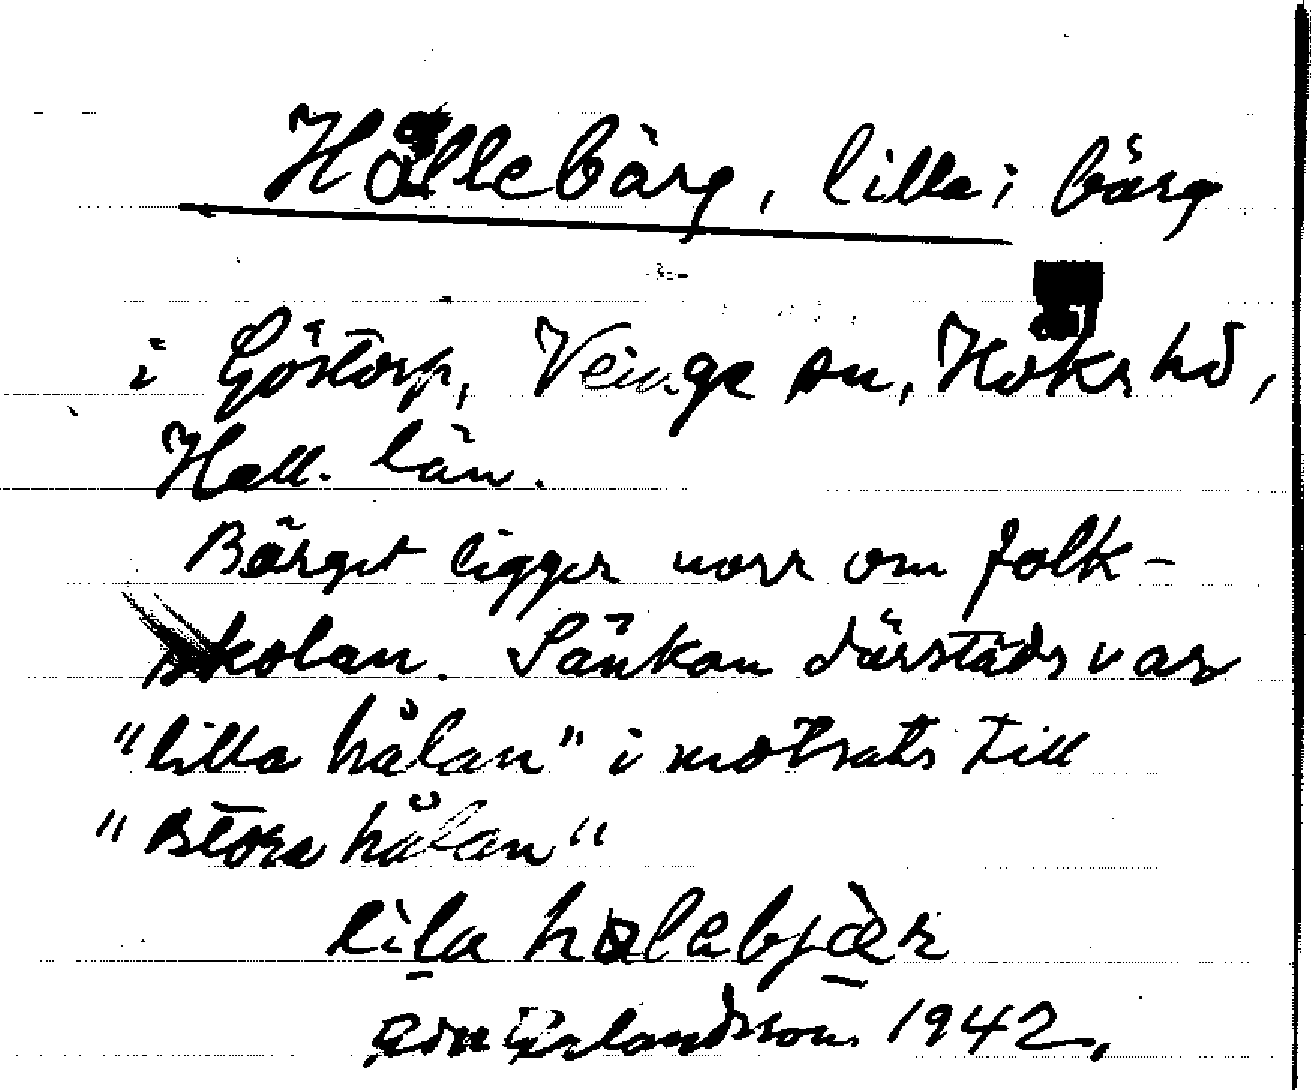 Hållebärg, lilla; bärg
i Göstorp, Veinge sn, Höks hd,
Hall. län.
Bärget ligger norr om folk-
skolan. Sänkan därstäds var
"lilla hålan" i motsats till
"Stora hålan"
lila halebjær
Erlandsson 1942.